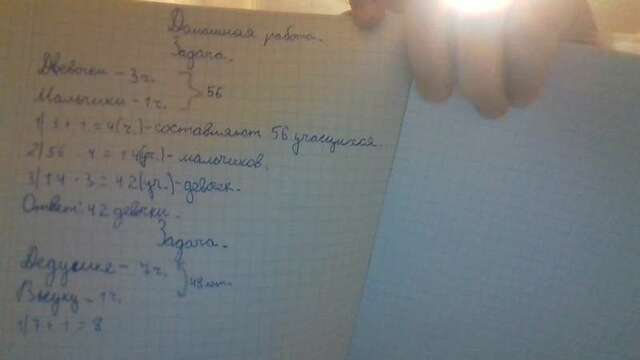 Домашная работа.
Задача.
Девочки - 3ч.
Мальчики - 1ч. } 56
1) 3 + 1 = 4(ч.) - составляют 56 учащихся.
2) 56 : 4 = 14(уч.) - мальчиков.
3) 14 · 3 = 42(уч.) - девочек.
Ответ: 42 девочки.
Задача.
Дедушке - 7ч.
Внуку - 1ч. } 48лет.
1) 7 + 1 = 8